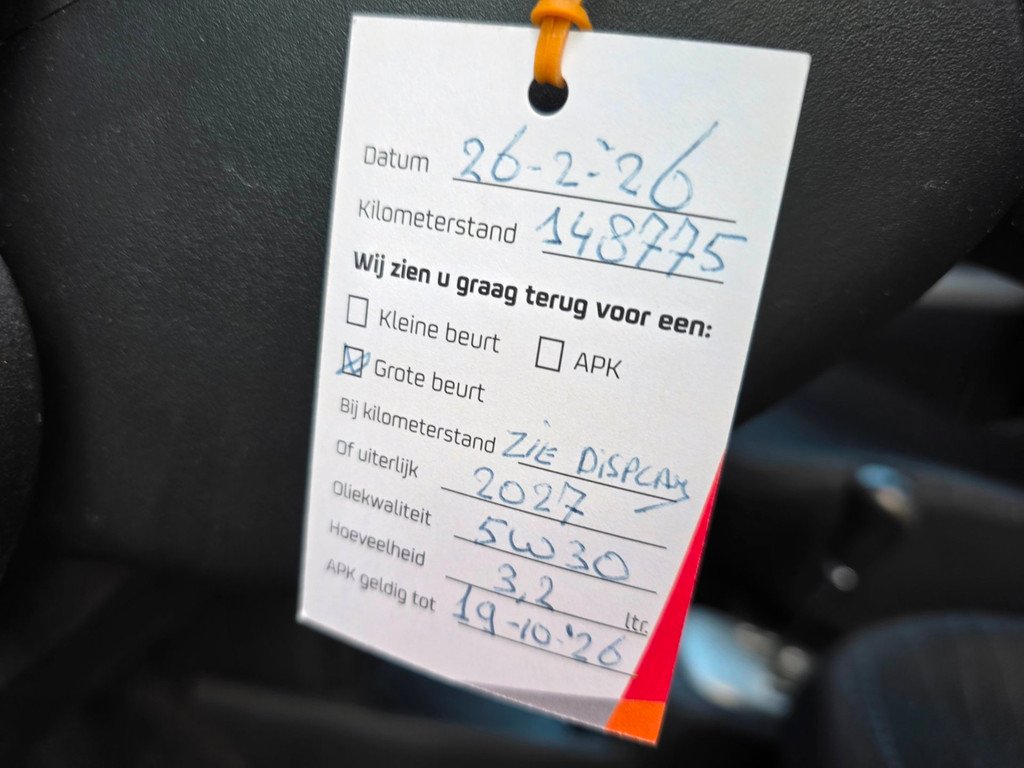 Datum 26-2-'26
Kilometerstand 148775
Wij zien u graag terug voor een:
Kleine beurt APK
Grote beurt
Bij kilometerstand ZIE DISPLAY
Of uiterlijk 2027
Oliekwaliteit 5W30
Hoeveelheid 3,2 ltr.
APK geldig tot 19-10-'26